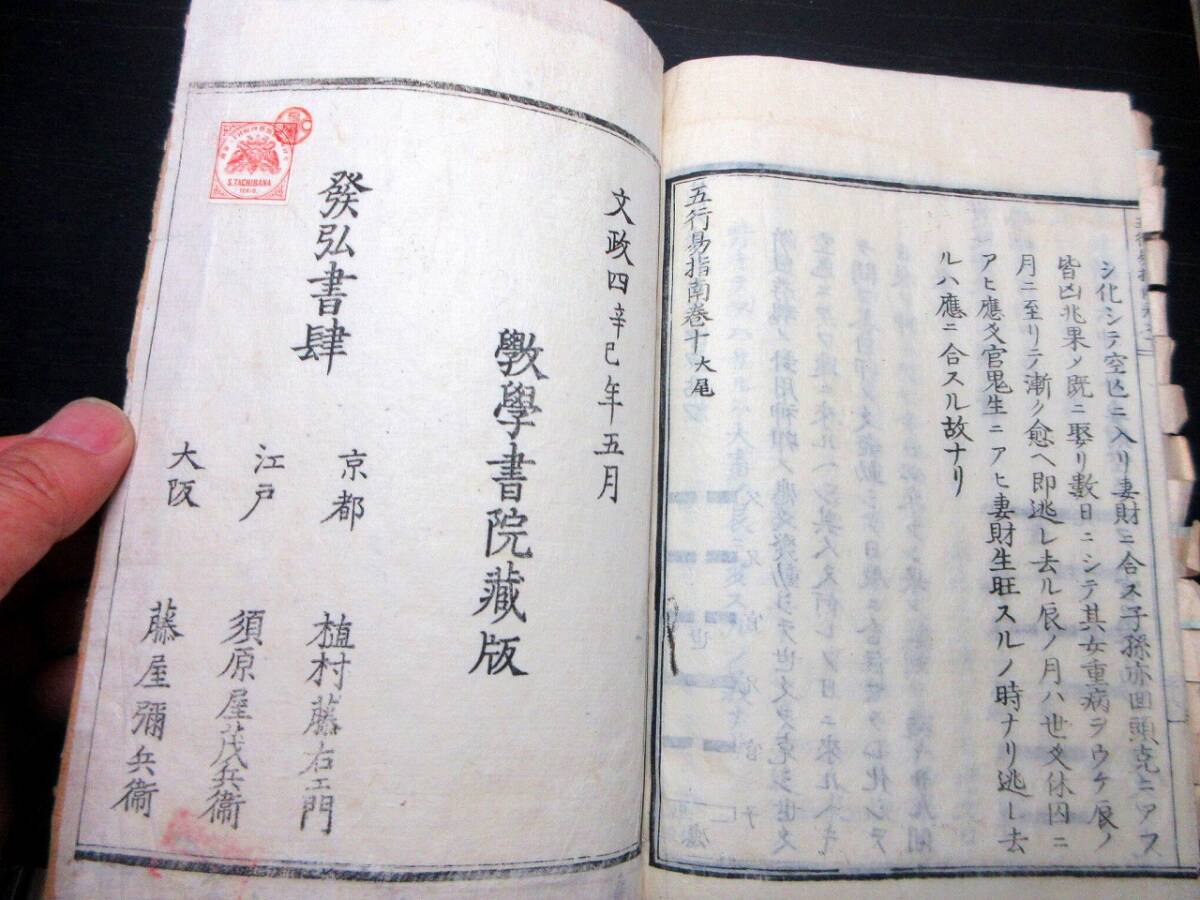 シ化シテ空亡ニ入リ妻財ニ合ス子孫亦回頭克ニアフ
皆凶兆果メ既ニ娶リ數日ニシテ其女重病ヲウケ辰ノ
月ニ至リテ漸ク愈ヘ即逃レ去ル辰ノ月ハ世爻休囚ニ
アヒ應爻官鬼生ニアヒ妻財生旺スルノ時ナリ逃レ去
ルハ應ニ合スル故ナリ
五行易指南卷十大尾
文政四辛巳年五月
斆學書院藏版
發弘書肆
京都 植村藤右エ門
江戸 須原屋茂兵衞
大阪 藤屋彌兵衞
S.TACHIBANA